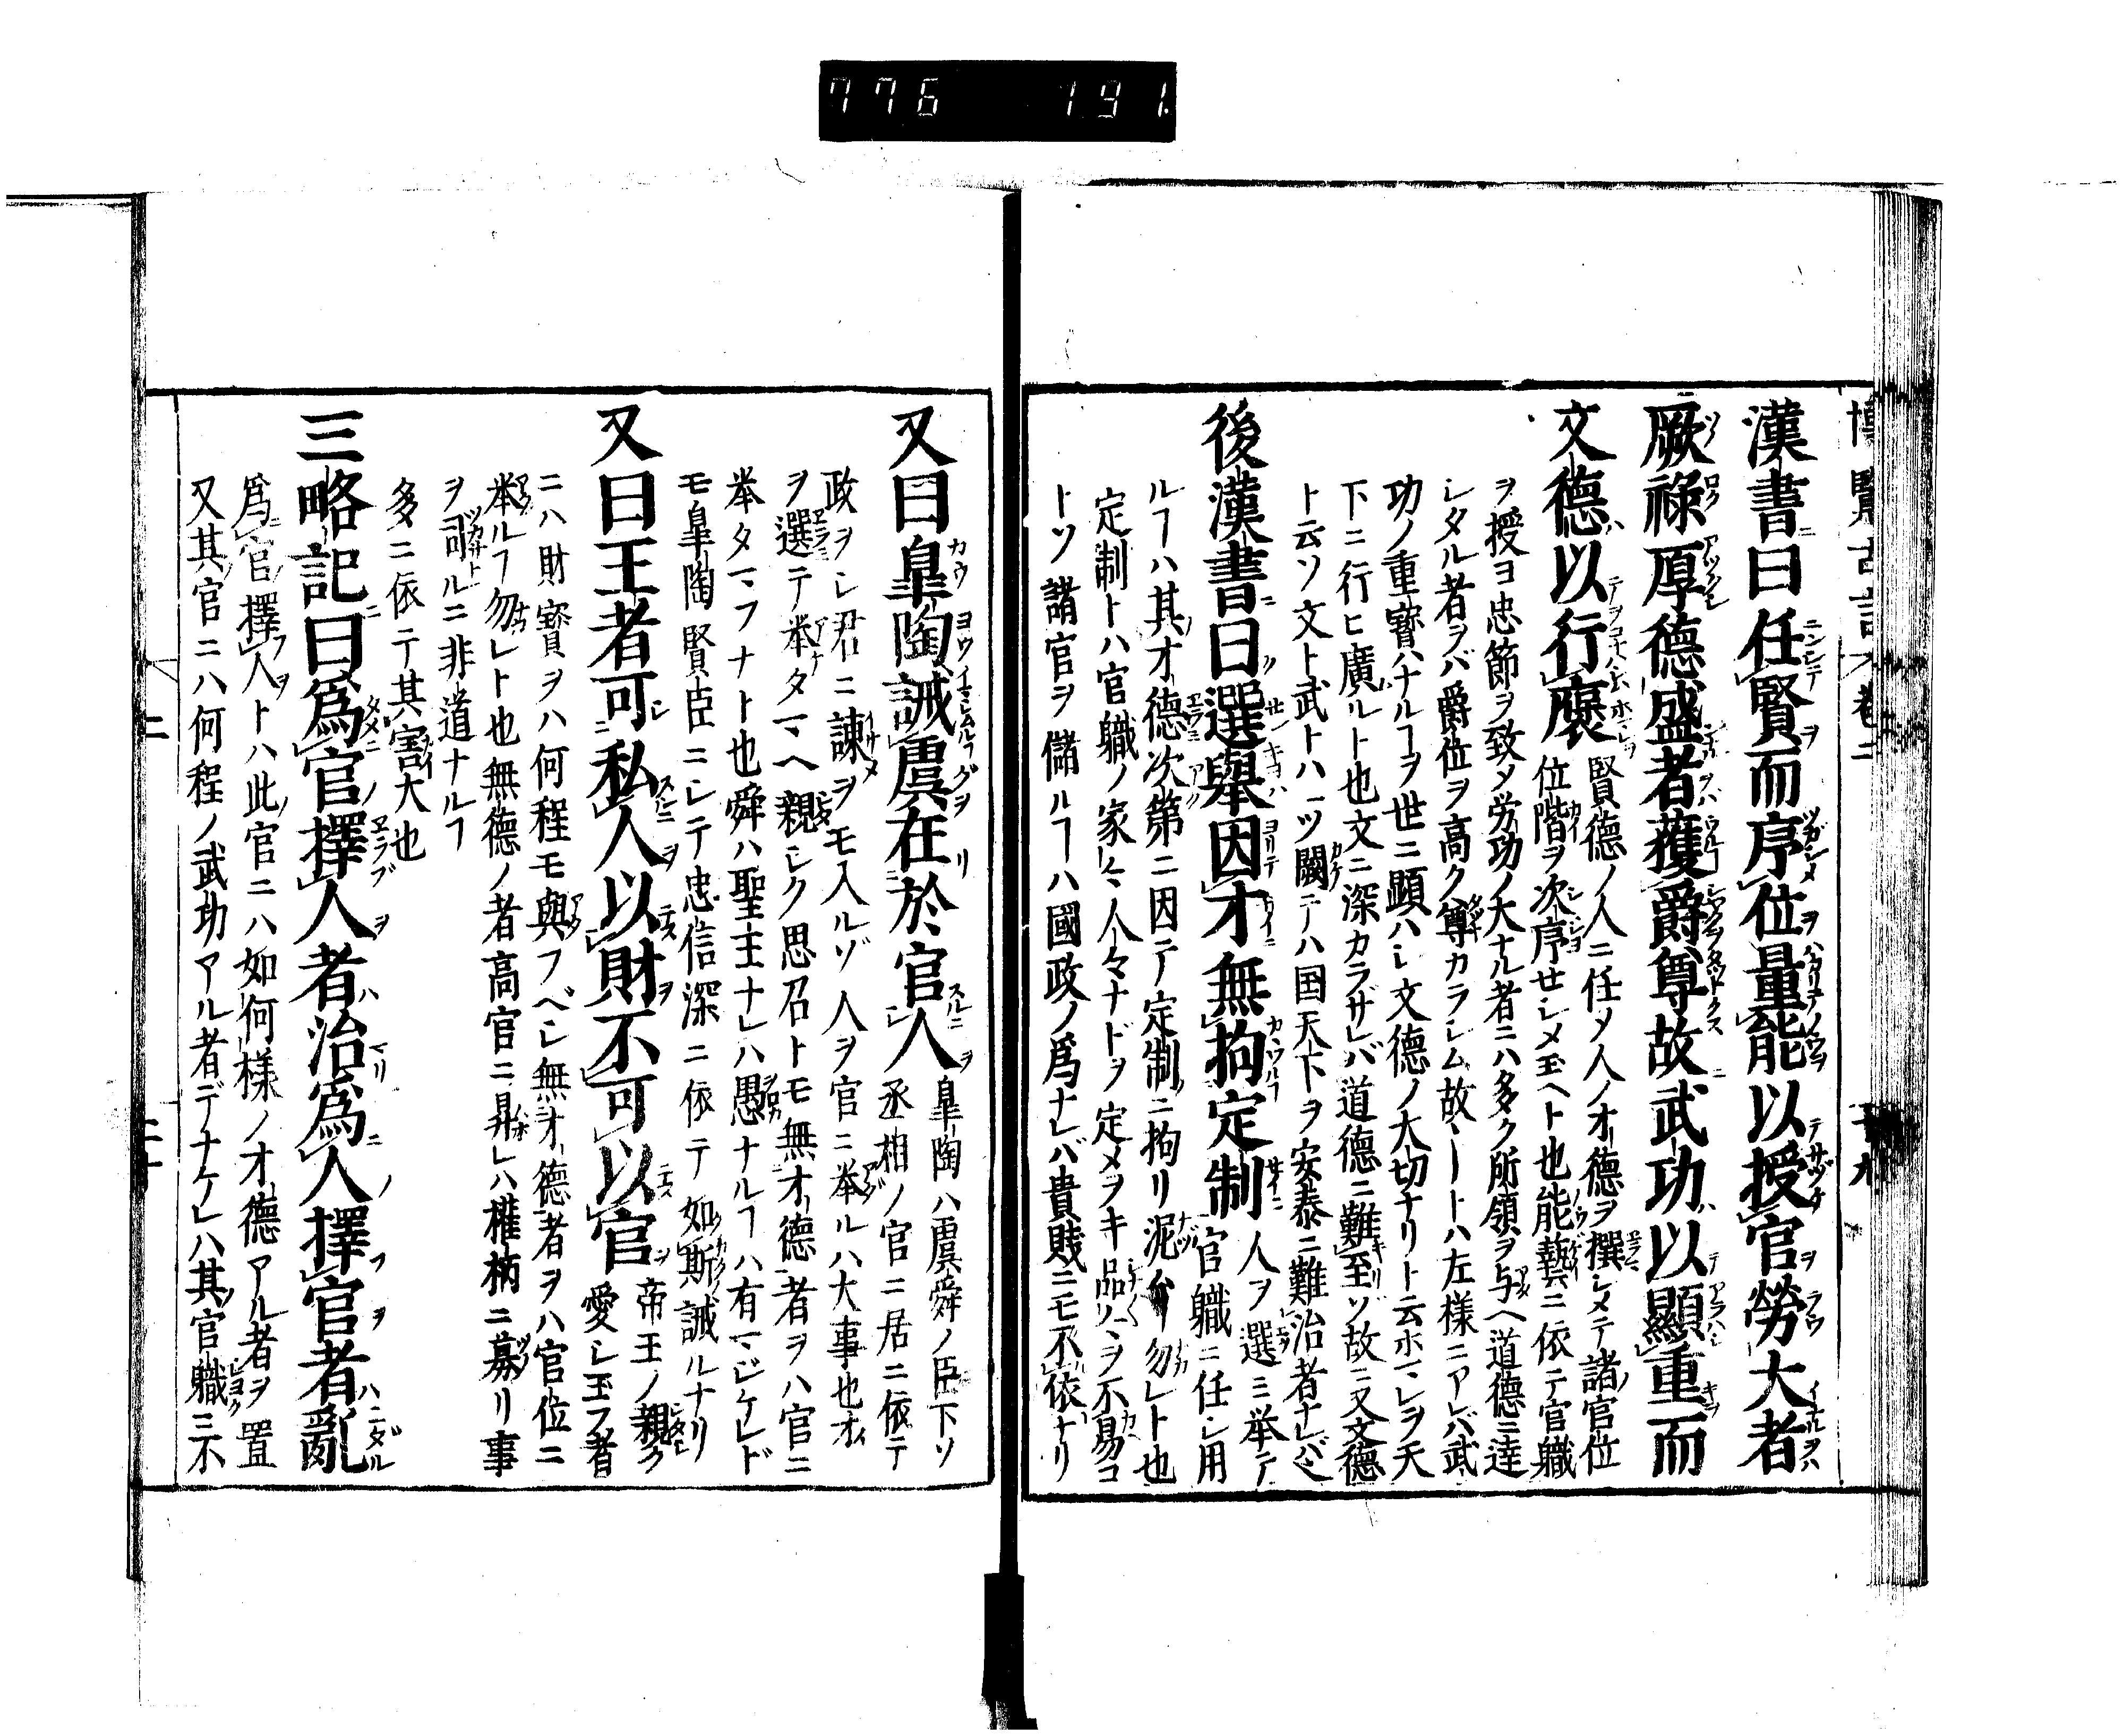 776 191
漢書曰任賢而序位量能以授官勞大者
厥祿厚德盛者獲爵尊故武功以顯重而
文德以行褒
賢德ノ人ニ任メ人ノ才德ヲ撰シメテ諸官位
位階ヲ次序せシメ玉ヘト也能藝ニ依テ官職
ヲ授ヨ忠節ヲ致メ労功ノ大ナル者ニハ多ク所領ヲ与ヘ道德ニ達
シタル者ヲバ爵位ヲ高ク尊カラシム故ニートハ左樣ニアレバ武
功ノ重寶ハナルヿヲ世ニ顯ハシ文德ノ大切ナリト云ホマレヲ天
下ニ行ヒ廣ルト也文ニ深カラザレバ道德ニ難至ソ故ニ又文德
ト云ソ文ト武トハ一ツ闕テハ国天下ヲ安泰ニ難治者ナレバ也
後漢書曰選舉因才無拘定制
人ヲ選ミ举テ
官職ニ任シ用
ルヿハ其才德次第ニ因テ定制ニ拘リ泥ヿ勿レト也
定制トハ官職ノ家々人々ナドヲ定メヲキ品々ヲ不易コ
トソ諸官ヲ儲ルヿハ國政ノ爲ナレバ貴賎ニモ不依ナリ
又曰皐陶誡虞在於官人
皐陶ハ虞舜ノ臣下ソ
丞相ノ官ニ居ニ依テ
政ヲシ君ニ諫ヲモ入ルゾ人ヲ官ニ举ルハ大事也才
ヲ選テ举タマヘ親シク思召トモ無才德者ヲハ官ニ
举タマフナト也舜ハ聖主ナレハ愚ナルヿハ有マジケレド
モ皐陶賢臣ニシテ忠信深ニ依テ如斯誡ルナリ
又曰王者可私人以財不可以官
帝王ノ親ク
愛シ玉フ者
ニハ財寶ヲハ何程モ與フベシ無才德者ヲハ官位ニ
举ルヿ勿レト也無德ノ者高官ニ昇レハ權柄ニ募リ事
ヲ司ルニ非道ナルヿ
多ニ依テ其害大也
三略記曰爲官擇人者治爲人擇官者亂
爲官擇人トハ此官ニハ如何樣ノ才德アル者ヲ置
又其官ニハ何程ノ武功アル者デナケレハ其官職ニ不
二